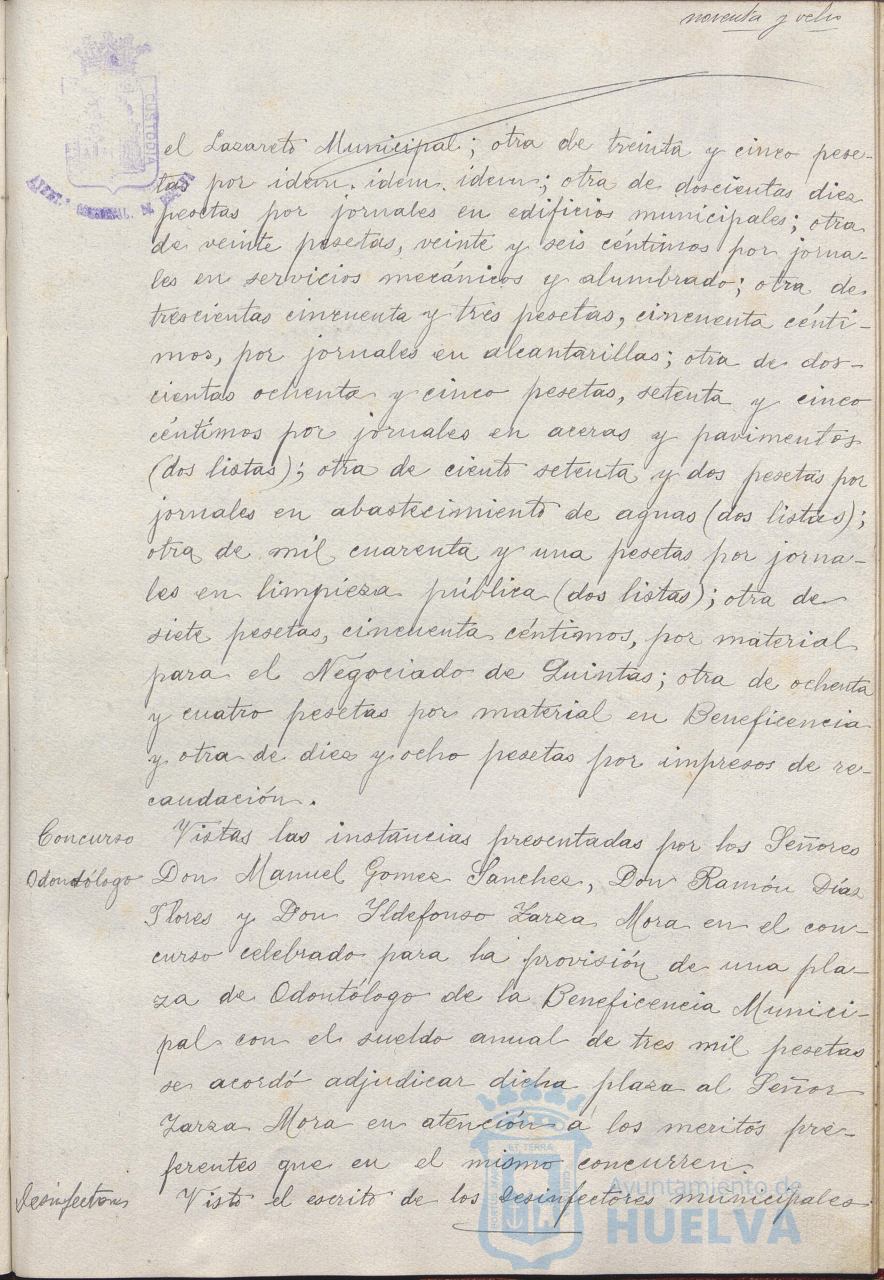 noventa y ocho
CUSTODIA
el Lazareto Municipal; otra de treinta y cinco pese-
tas por idem. idem. idem; otra de doscientas diez
pesetas por jornales en edificios municipales; otra
de veinte pesetas, veinte y seis céntimos por jorna-
les en servicios mecánicos y alumbrado; otra de
trescientas cincuenta y tres pesetas, cincuenta cénti-
mos, por jornales en alcantarillas; otra de dos-
cientas ochenta y cinco pesetas, setenta y cinco
céntimos por jornales en aceras y pavimentos
(dos listas); otra de ciento setenta y dos pesetas por
jornales en abastecimiento de aguas (dos listas);
otra de mil cuarenta y una pesetas por jorna-
les en limpieza pública (dos listas); otra de
siete pesetas, cincuenta céntimos, por material
para el Negociado de Quintas; otra de ochenta
y cuatro pesetas por material en Beneficencia
y otra de diez y ocho pesetas por impresos de re-
caudación.
Concurso Vistas las instancias presentadas por los Señores
Odontólogo Don Manuel Gomez Sanchez, Don Ramón Días
Flores y Don Ildefonso Zarza Mora en el con-
curso celebrado para la provisión de una pla-
za de Odontólogo de la Beneficencia Munici-
pal con el sueldo anual de tres mil pesetas
se acordó adjudicar dicha plaza al Señor
Zarza Mora en atención a los meritos pre-
ferentes que en el mismo concurren.
Desinfectores Visto el escrito de los Desinfectores municipales
Ayuntamiento de
HUELVA